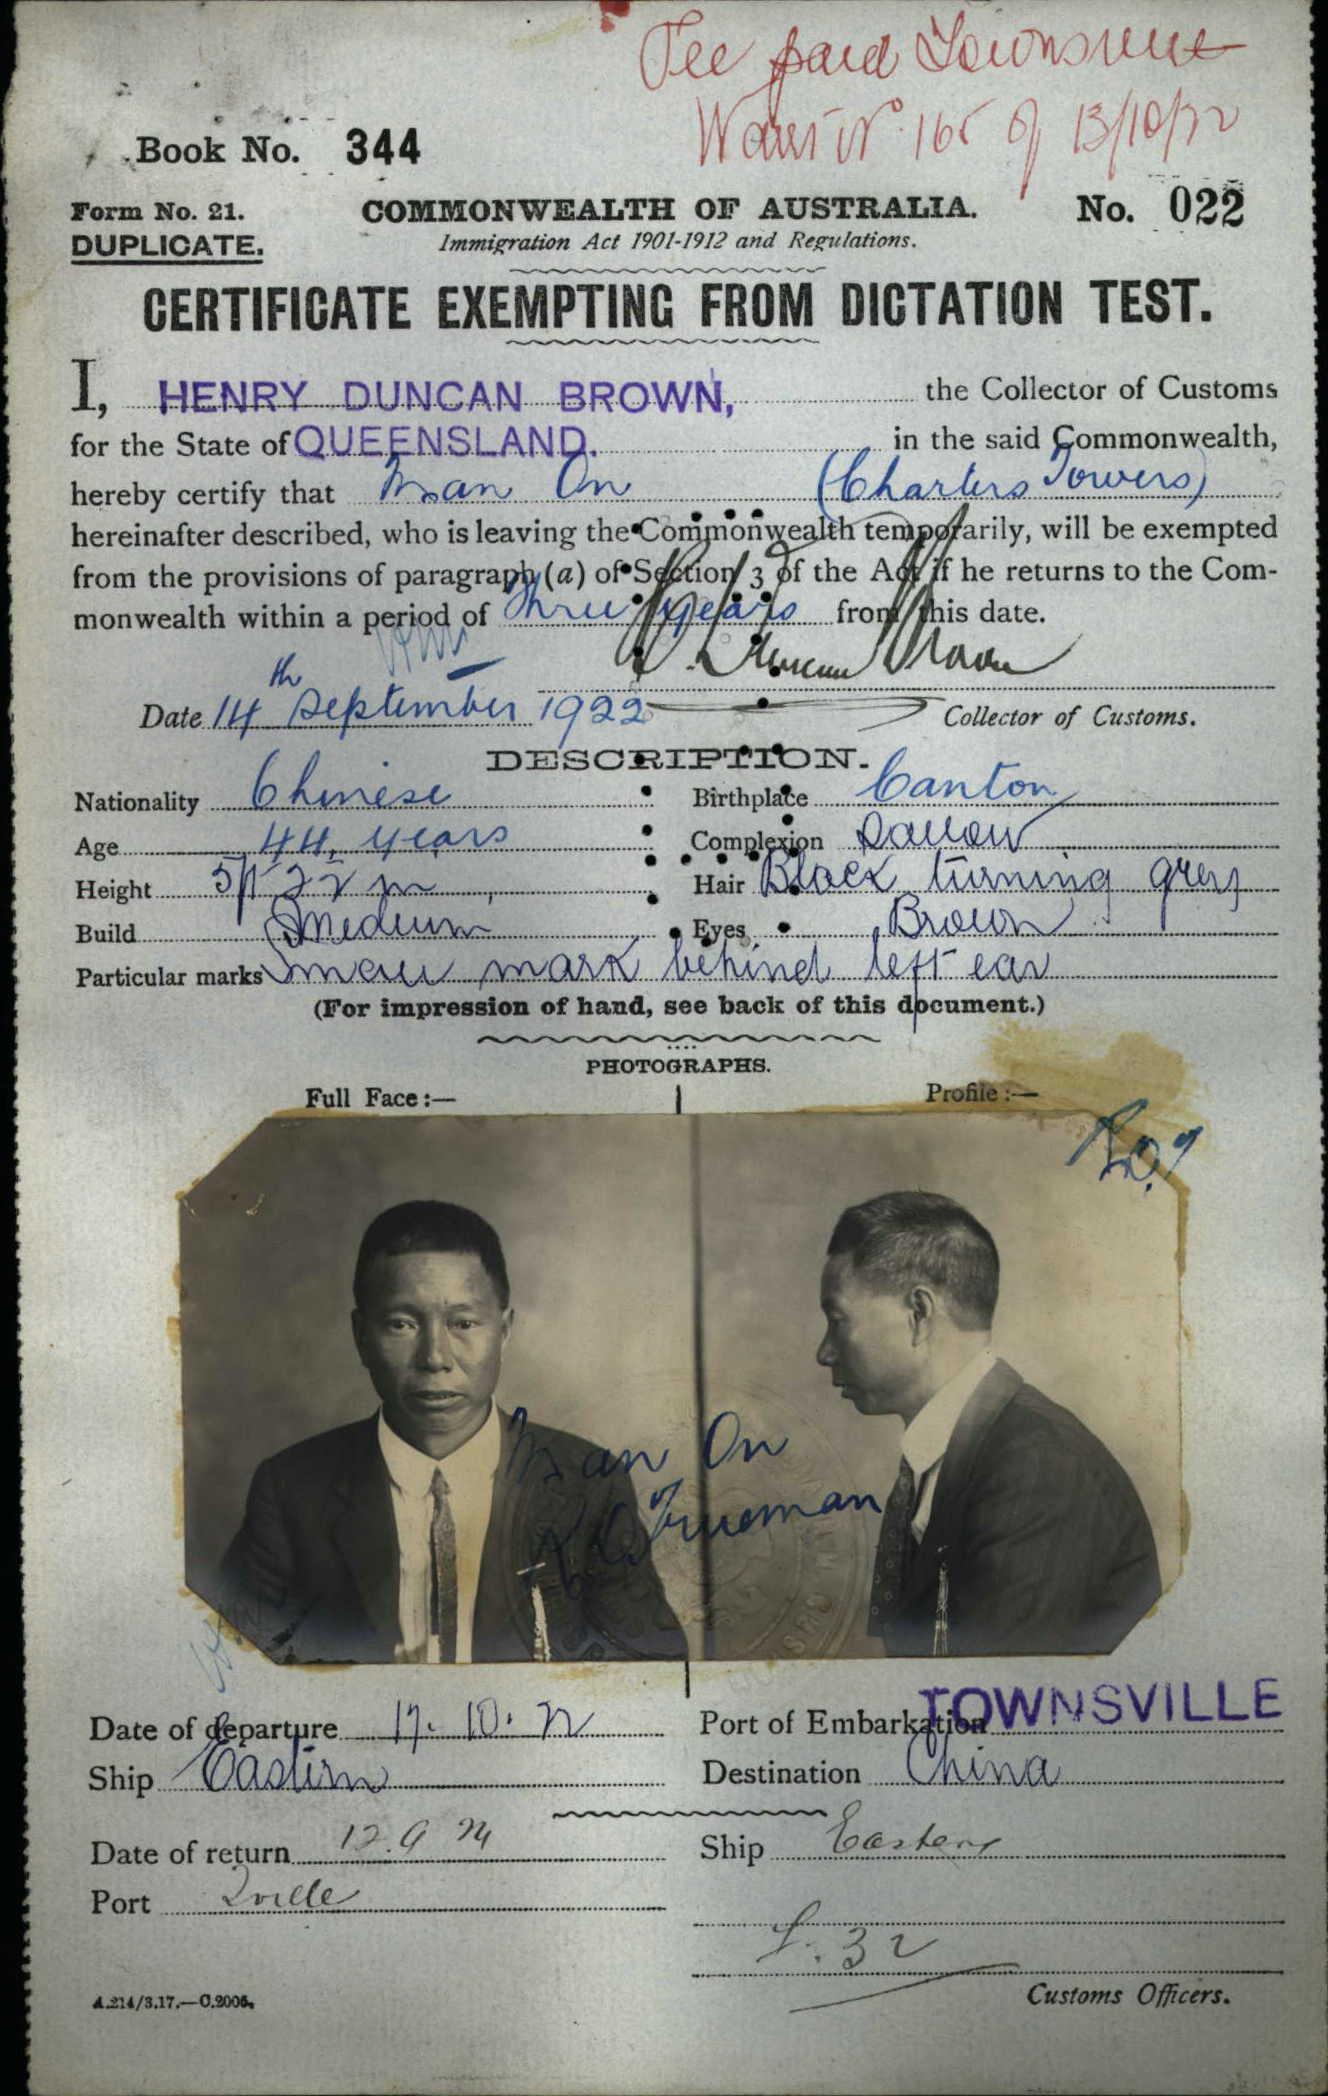 Fee paid Townsville
Warrt No. 165 of 13/10/22
Book No. 344
Form No. 21. COMMONWEALTH OF AUSTRALIA. No. 022
DUPLICATE. Immigration Act 1901-1912 and Regulations.
CERTIFICATE EXEMPTING FROM DICTATION TEST.
I, HENRY DUNCAN BROWN, the Collector of Customs
for the State of QUEENSLAND. in the said Commonwealth,
hereby certify that Man On (Charters Towers)
hereinafter described, who is leaving the Commonwealth temporarily, will be exempted
from the provisions of paragraph (a) of Section 3 of the Act if he returns to the Com-
monwealth within a period of three years from this date.
H. Duncan Brown
Date 14th September 1922 Collector of Customs.
DESCRIPTION.
Nationality Chinese Birthplace Canton
Age 44 years Complexion Sallow
Height 5ft 2½ in Hair Black turning grey
Build Medium Eyes Brown
Particular marks Small mark behind left ear
(For impression of hand, see back of this document.)
PHOTOGRAPHS.
Full Face:— Profile:—
Man On
Trueman
Date of departure 17.10.22 Port of Embarkation TOWNSVILLE
Ship Eastern Destination China
Date of return 12.9.24 Ship Eastern
Port Tville
32
A.214/3.17.—C.2005. Customs Officers.